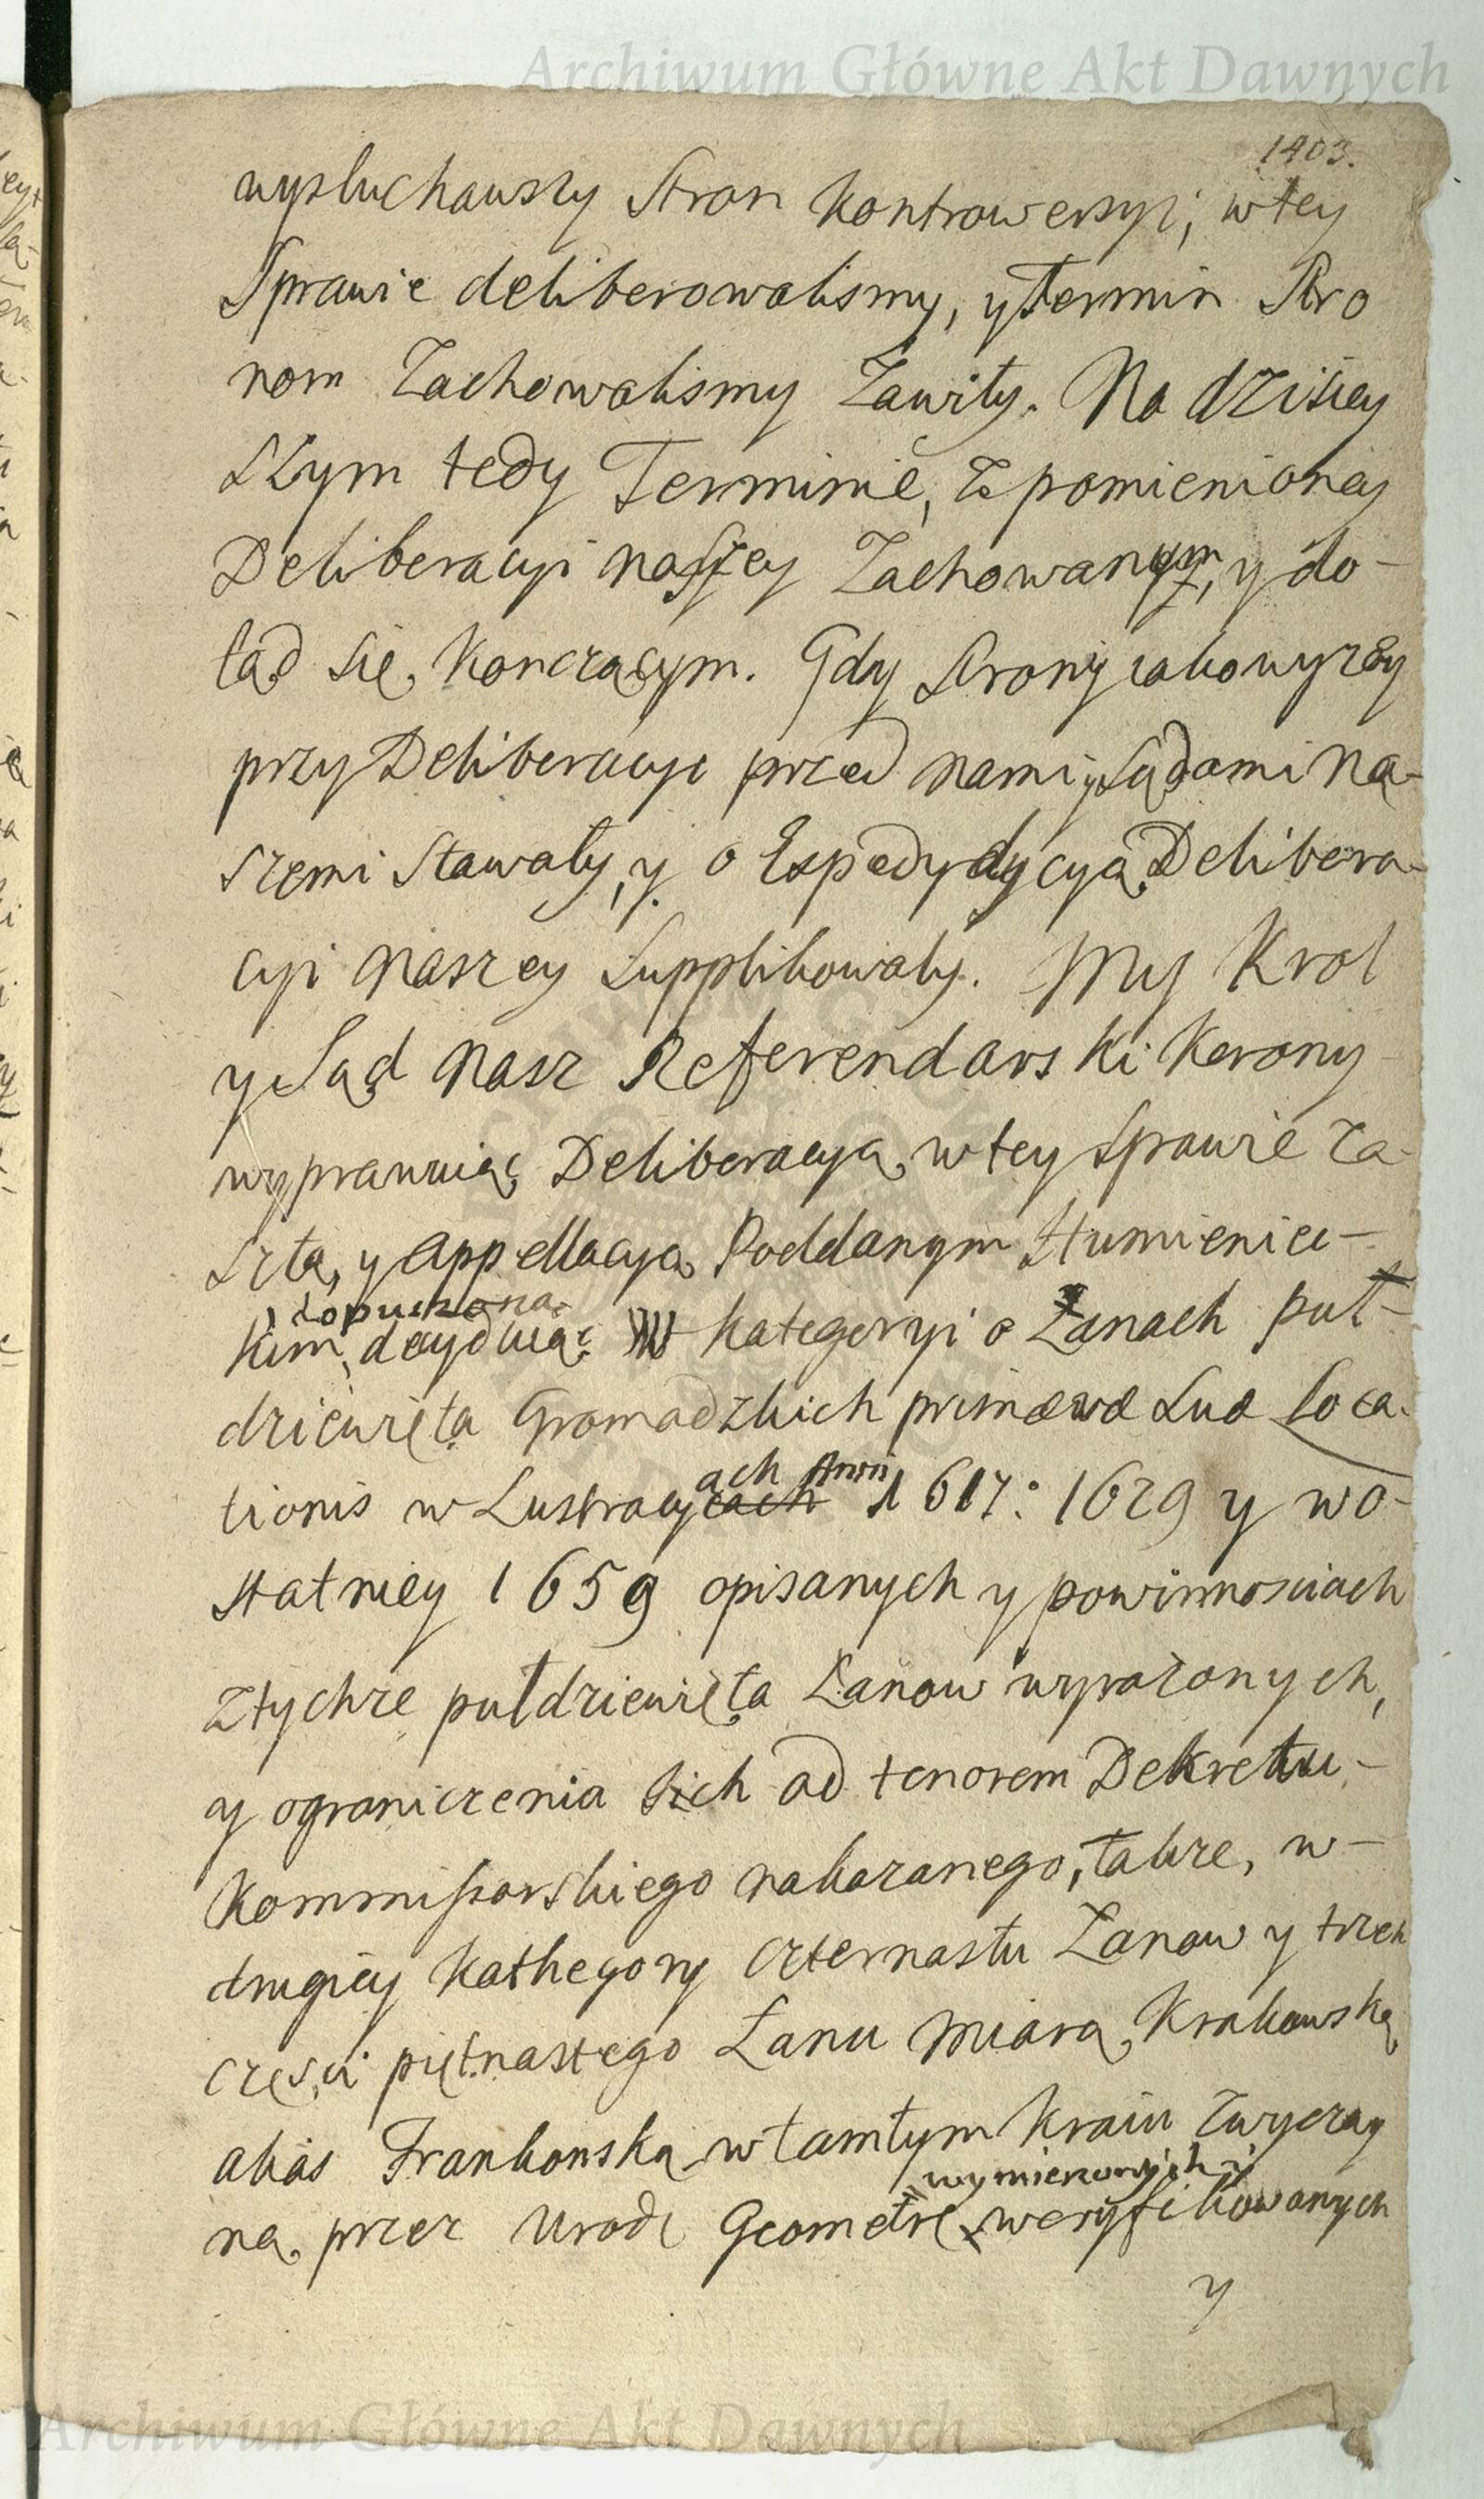 Archiwum Główne Akt Dawnych
1403.
wysłuchawszy Stron kontrowersyi, w tey
Sprawie deliberowalismy, y termin Stro
nom Zachowalismy Zawity. Na dzisiey
szym tedy Terminie, z pomienioney
Deliberacyi naszey Zachowanym, y do-
tąd się konczącym. Gdy Strony iako wyżey
przy Deliberacyi przed nami y Sądami Na-
szemi stawały, y o Expedydycyą Delibera-
cyi naszey supplikowały. My Krol
y Sąd nasz Referendarski Korony
wyprawuiąc Deliberacyą w tey Sprawie za-
szłą, y appellacyą Poddanym Humieniec-
dopuszczoną
kim, decyduiąc w kategoryi o Łanach puł-
dziewięta Gromadzkich primæva sua Loca-
ach Anni
tionis w Lustracyiach 1617: 1629 y w o-
statniey 1659 opisanych y powinnosciach
z tychże pułdziewięta Łanow wyrażonych,
y ograniczenia ich ad tenorem Dekretu
Kommissarskiego nakazanego, także, w
drugiey kathegory czternastu Łanow y trzech
częsci piętnastego Łanu miarą Krakowską
alias Frankonską w tamtym kraiu zwyczay
wymierzonych y
ną przez Urodz Geometrę weryfikowanych
y
Archiwum Główne Akt Dawnych